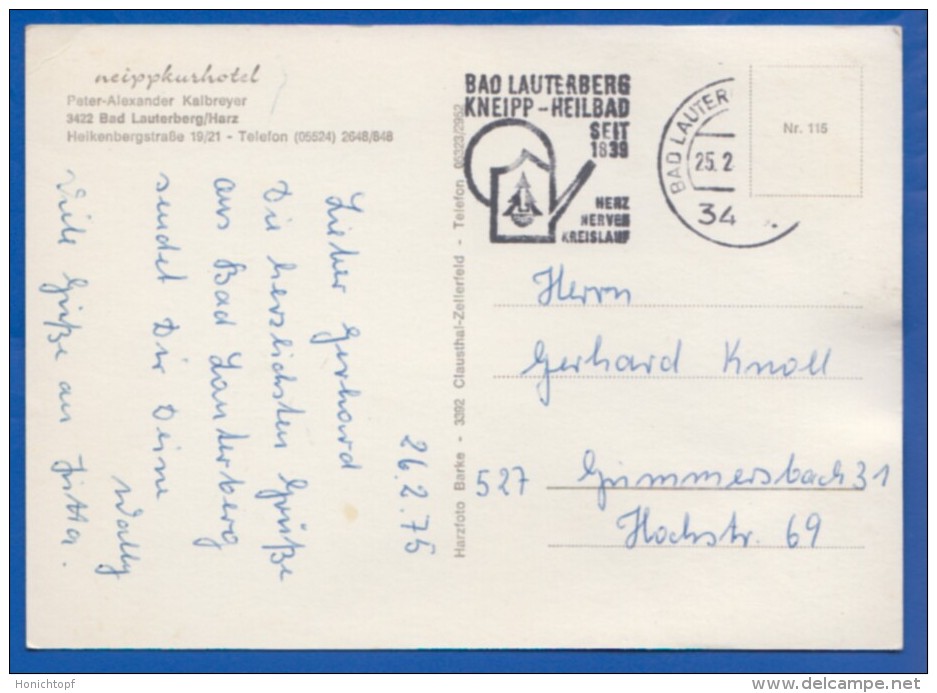 neippkurhotel
Peter-Alexander Kalbreyer
3422 Bad Lauterberg/Harz
Heikenbergstraße 19/21 - Telefon (05524) 2648/848
26.2.75
Lieber Gerhard
Die herzlichsten Grüße
aus Bad Lauterberg
sendet Dir Deine
Wally
Viele Grüße an Jutta.
Harzfoto Barke - 3392 Clausthal-Zellerfeld - Telefon 05323/2952
BAD LAUTERBERG
KNEIPP-HEILBAD
SEIT
1839
HERZ
NERVEN
KREISLAUF
BAD LAUTER
25.2
34
Nr. 115
Herrn
Gerhard Knoll
527 Gummersbach 31
Hochstr. 69
Honichtopf